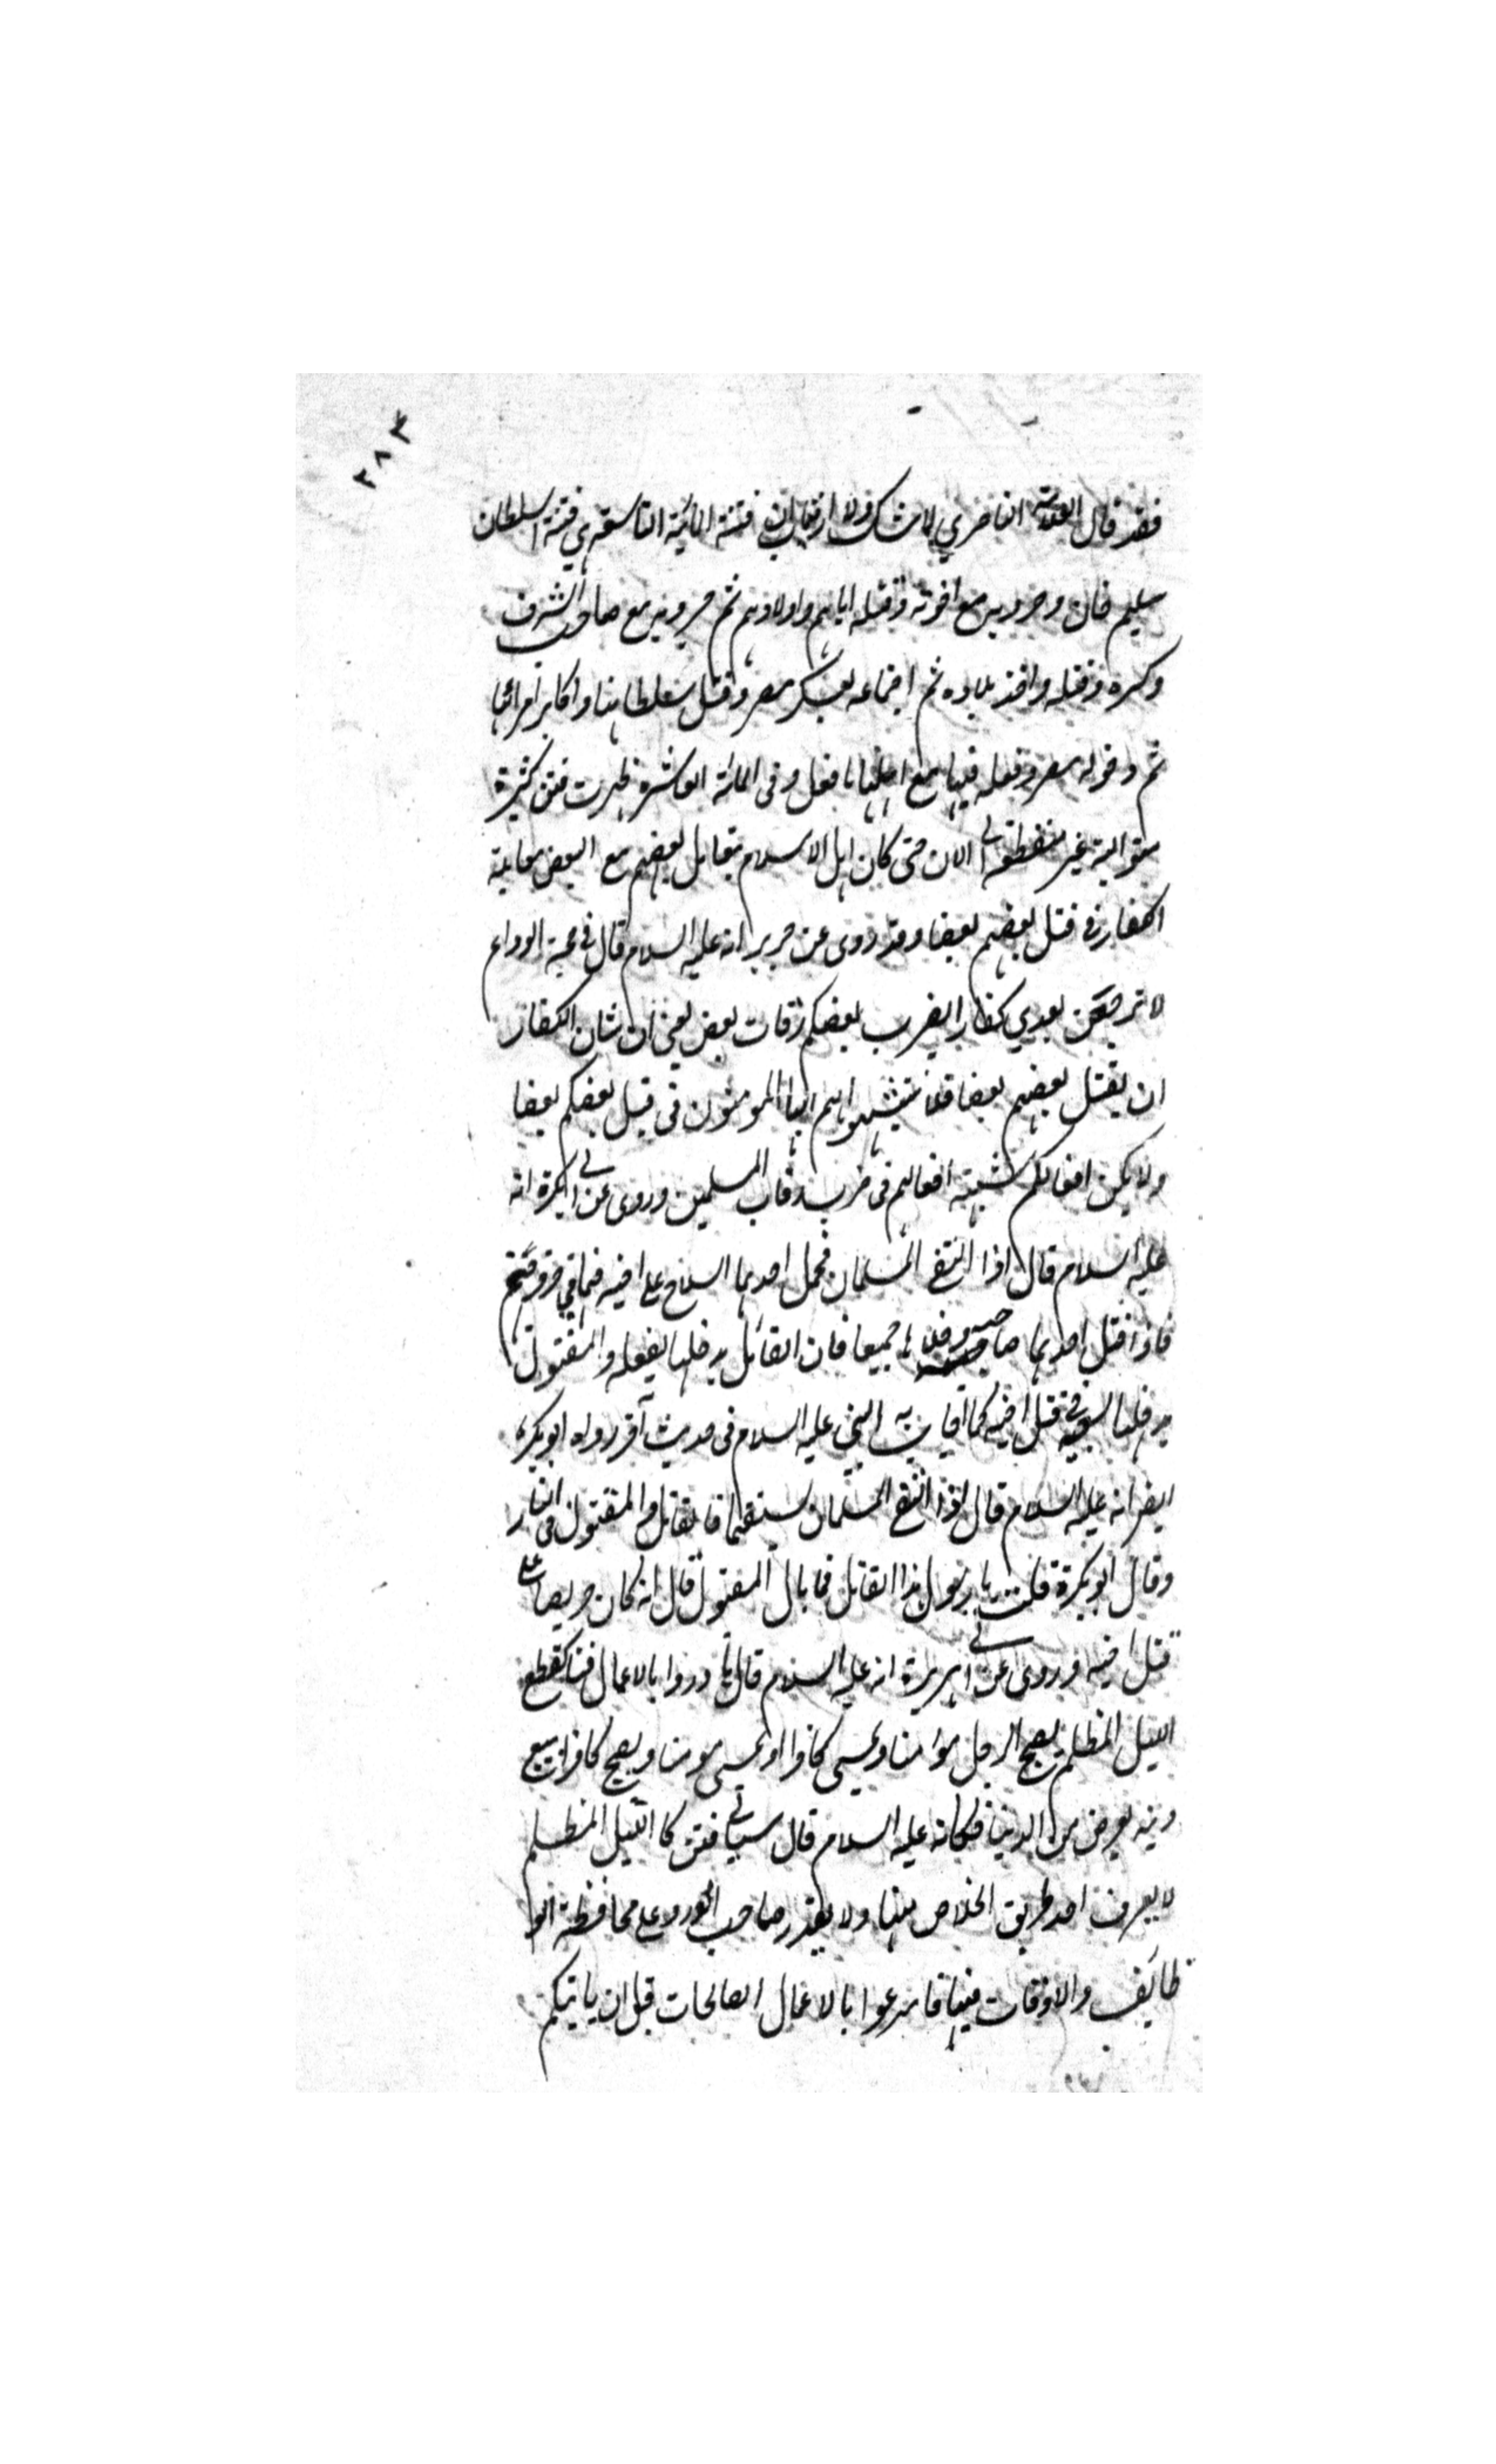 ٢٨٣
فقد قال العلامة الناصري لا شك ولا ارتياب ان فتنة المائية التاسعة هي فتنة السلطان
سليم فان وحروبه مع اخوته وقتله اياهم واولادهم ثم حروبه مع صاحب الشرق
وكسره وقتله واخذ بلاده ثم اجتماعه بعسكر مصر وقتل سلطانها واكابر امرائها
ثم دخوله مصر وفعله فيها مع اهلها ما فعل وفي المائة العاشرة ظهرت فتن كثيرة
متوالية غير منقطعة الى الان حتى كان اهل الاسلام يقاتل بعضهم مع البعض مقاتلة
الكفار في قتل بعضهم بعضا وقد روى عن جرير انه عليه السلام قال في حجة الوداع
لا ترجعن بعدي كفارا يضرب بعضكم رقات بعض يعني ان شان الكفار
ان يقتل بعضهم بعضا فلا تتشبهوا بهم ايها المومنون في قتل بعضكم بعضا
ولا يكن افعالكم شبيهة افعالهم في ضرب رقاب المسلمين وروى عن ابي بكرة انه
عليه السلام قال اذا التقى المسلمان فحمل احدهما السلاح على اخيه فهما في جرف جهنم
فاذا قتل احدهما صاحبه دخلاها جميعا فان القاتل يدخلها بفعله والمقتول
يدخلها لسعيه في قتل اخيه كما اجاب به النبي عليه السلام في حديث آخر رواه ابو بكرة
ايضا انه عليه السلام قال اذا التقى المسلمان بسيفهما فالقاتل والمقتول في النار
وقال ابو بكرة قلت يا رسول هذا القاتل فما بال المقتول قال انه كان حريصا على
قتل اخيه وروى عن ابي هريرة انه عليه السلام قال بادروا بالاعمال فتنا كقطع
الليل المظلم يصبح الرجل مؤمنا ويمسي كافرا او يمسي مومنا ويصبح كافرا يبيع
دينه بعرض من الدنيا فكانه عليه السلام قال سياتي فتن كالليل المظلم
لا يعرف احد طريق الخلاص منها ولا يقدر صاحب الورد على محافظة الو
ظائف والاوقات فيها فاسرعوا بالاعمال الصالحات قبل ان ياتيكم